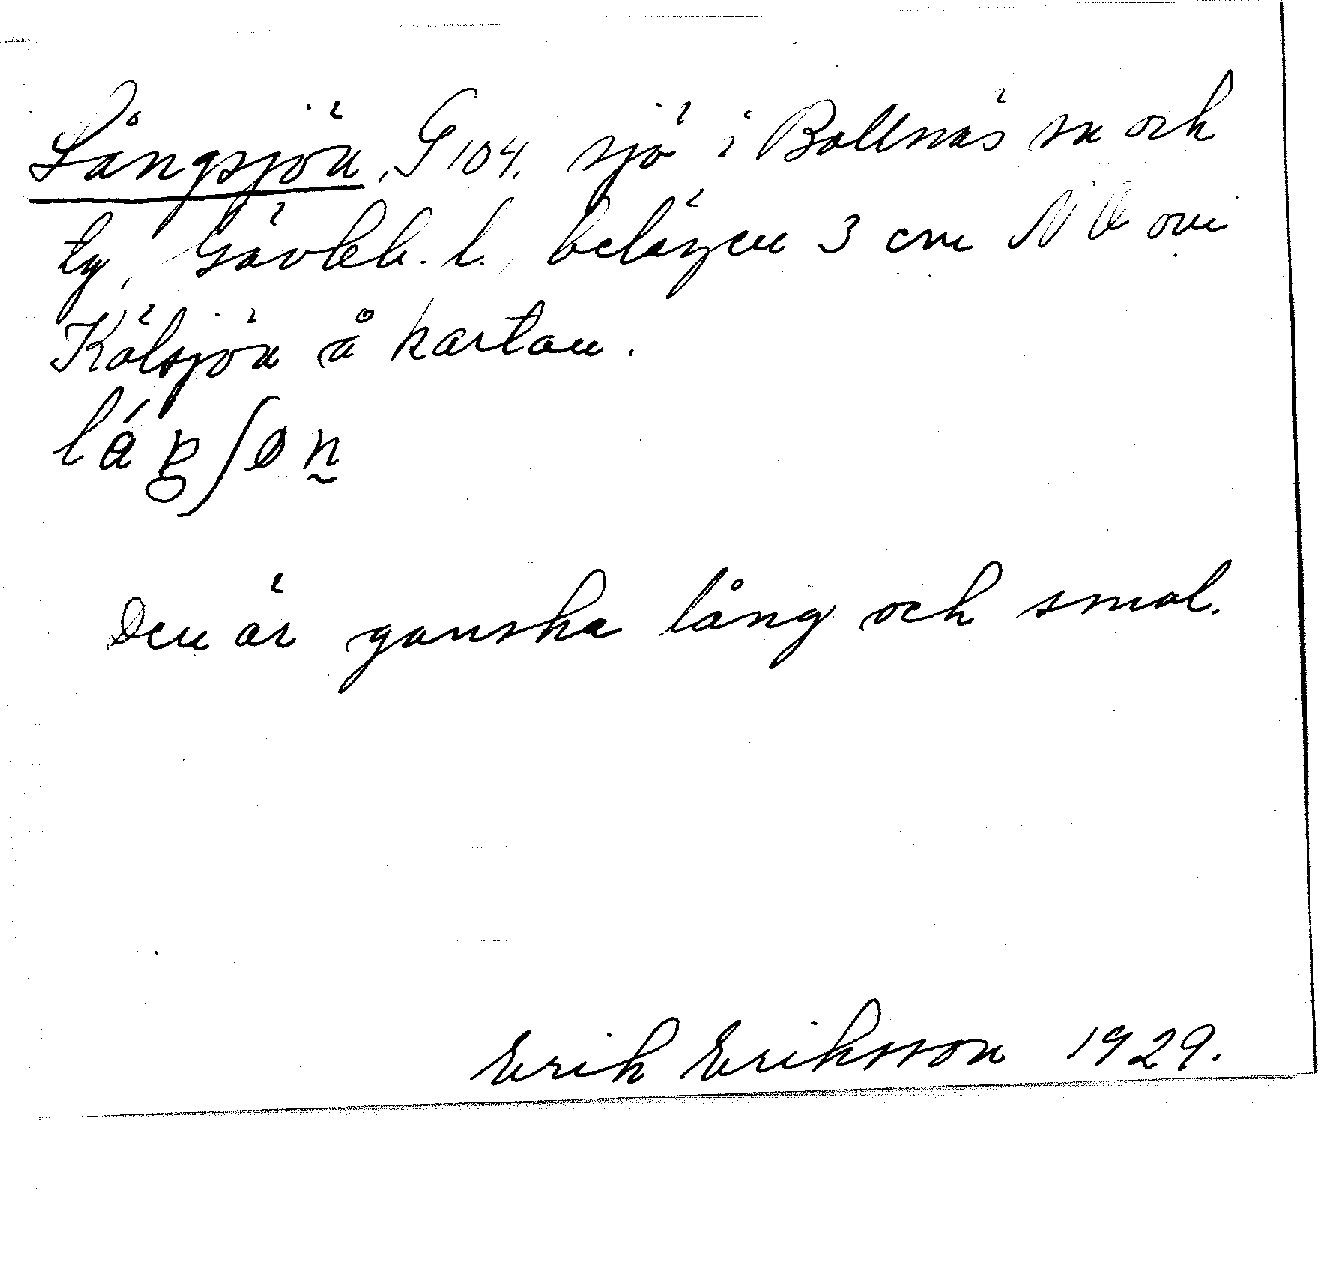 Långsjön, G 104. sjö i Bollnäs sn och
tg, Gävleb. l., belägen 3 cm NV om
Kölsjön å kartan.
Den är ganska lång och smal.
Erik Eriksson 1929.